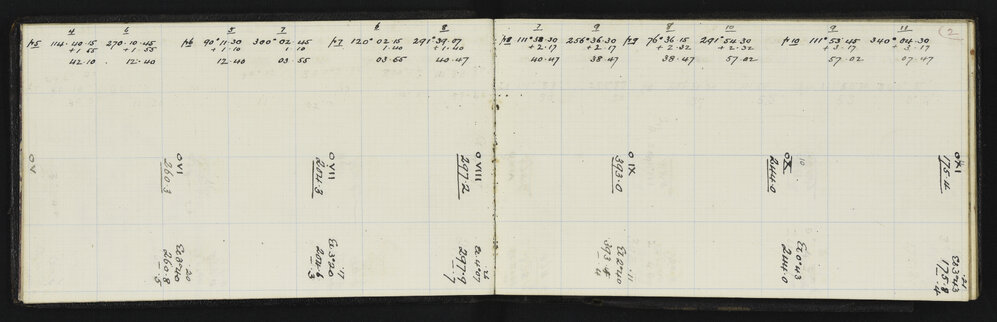 4 6 5 7 6 8
p5 114·40·15 270·10·45 p6 90°11·30 300°02·45 p7 120°02·15 291°39·07
+1·55 +1·55 +1·10 1·10 1·40 +1·40
42·10 12·40 12·40 03·55 03·55 40·47
O V
O VI
260·3
O VII
204·3
O VIII
297·2
E2 3°40
260·8
·5
E2 3°20
204·6
·3
E2 4°07
297·9
·7
7 9 8 10 9 11 (2
p8 111°38·30 256°36·30 p9 76°36·15 291°54·30 p10 111°53·45 340°04·30
+2·17 +2·17 +2·32 +2·32 +3·17 +3·17
40·47 38·47 38·47 57·02 57·02 07·47
O IX
393·0
10
OX
244·0
O XI
175·4
E2 2°40
·11
E2 0°43
244·0
E2 3°43
175·8
·4